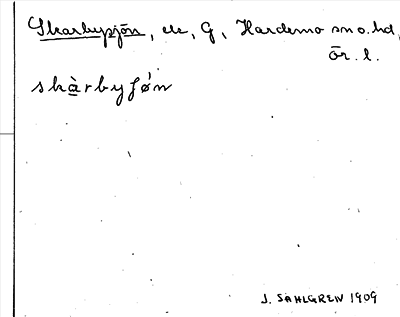 Skarbysjön, ek, G, Hardemo sn o. hd,
Ör. l.
skàrbyʃǿn
J. SAHLGREN 1909